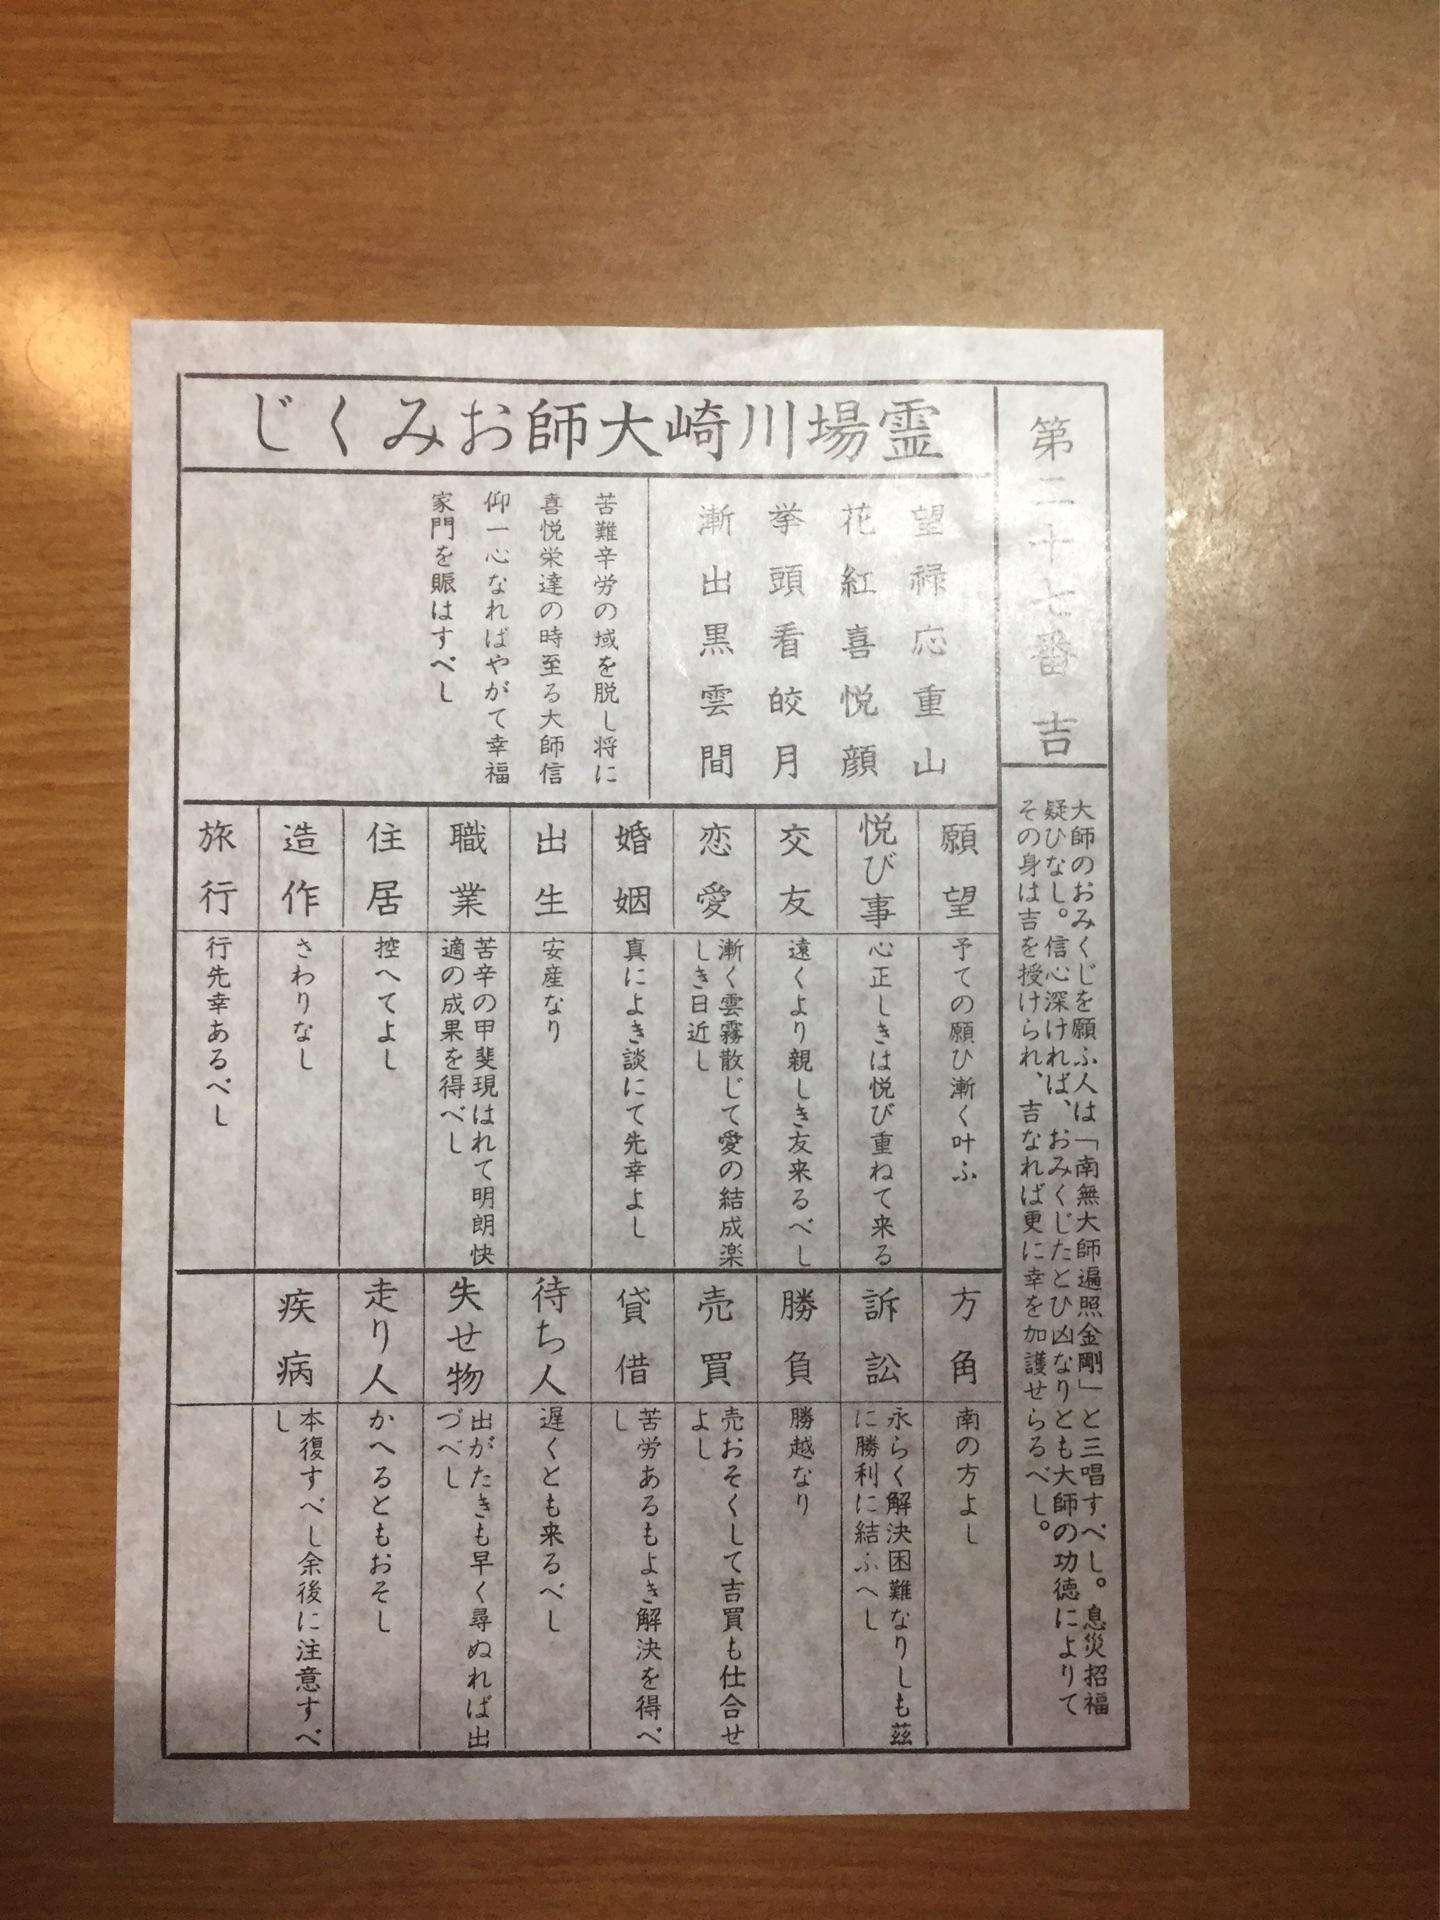 第二十七番 吉
大師のおみくじを願ふ人は「南無大師遍照金剛」と三唱すべし。息災招福
疑ひなし。信心深ければ、おみくじたとひ凶なりとも大師の功徳によりて
その身は吉を授けられ、吉なれば更に幸を加護せらるべし。
霊場川崎大師おみくじ
望禄応重山
花紅喜悦顔
挙頭看皎月
漸出黒雲間
苦難辛労の域を脱し将に
喜悦栄達の時至る大師信
仰一心なればやがて幸福
家門を賑はすべし
願望
予ての願ひ漸く叶ふ
悦び事
心正しきは悦び重ねて来る
交友
遠くより親しき友来るべし
恋愛
漸く雲霧散じて愛の結成楽
しき日近し
婚姻
真によき談にて先幸よし
出生
安産なり
職業
苦辛の甲斐現はれて明朗快
適の成果を得べし
住居
控へてよし
造作
さわりなし
旅行
行先幸あるべし
方角
南の方よし
訴訟
永らく解決困難なりしも茲
に勝利に結ふへし
勝負
勝越なり
売買
売おそくして吉買も仕合せ
よし
貸借
苦労あるもよき解決を得べ
し
待ち人
遅くとも来るべし
失せ物
出がたきも早く尋ぬれば出
づべし
走り人
かへるともおそし
疾病
本復すべし余後に注意すべ
し